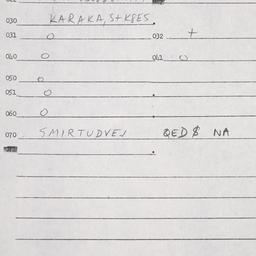 030 KARAKA, S+KPES
031 O 032 +
040 O 041 O
050 O
051 O
060 O
070 SMIRTUDVEJ QED $ NA